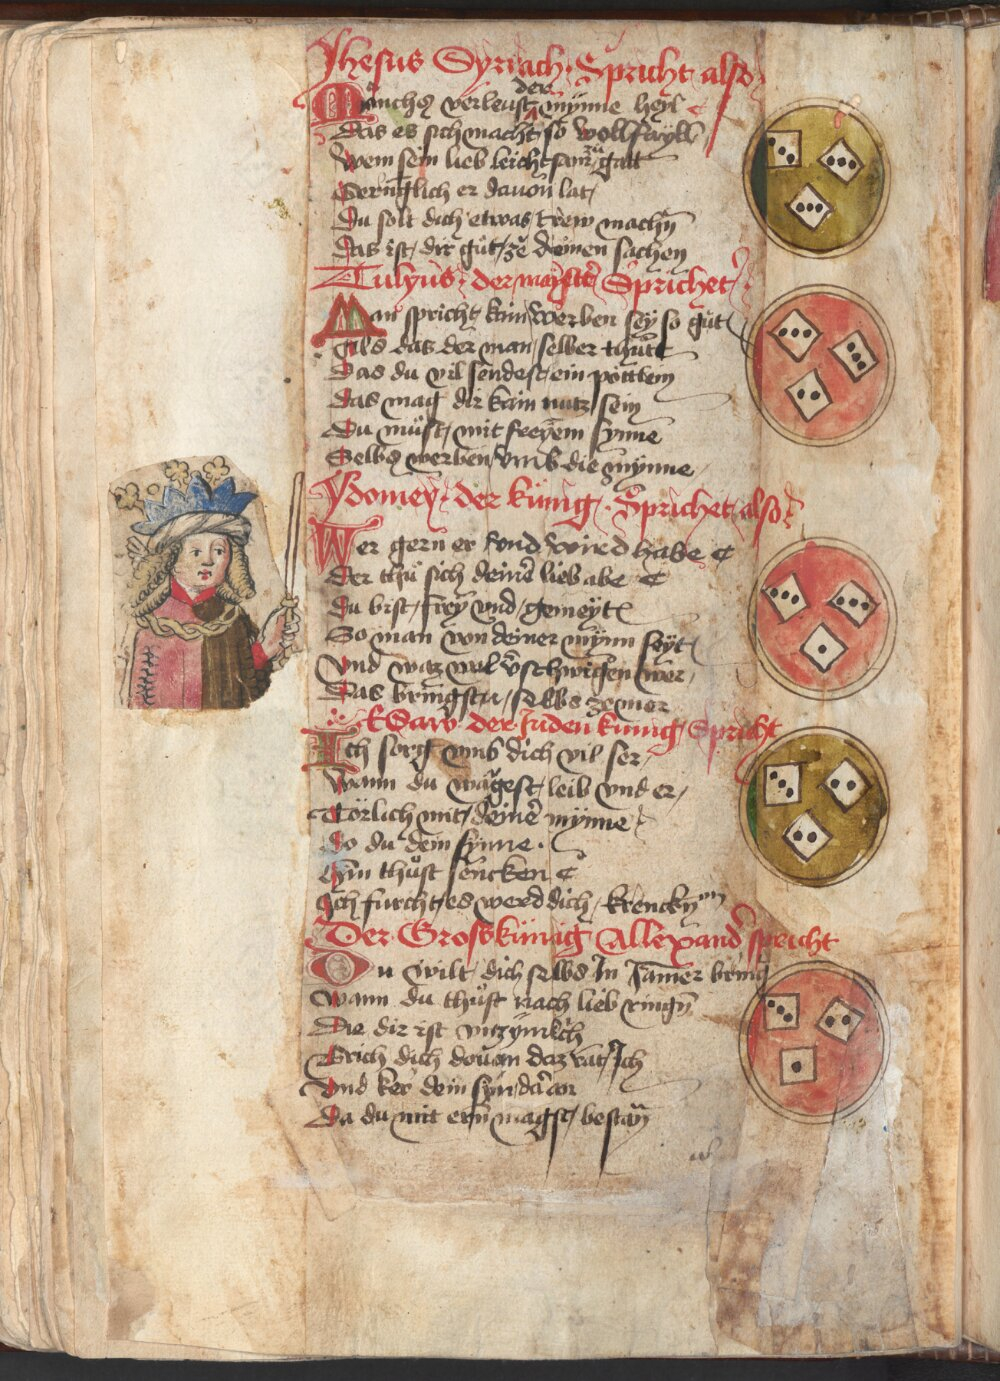 Jhesus Syrach Spricht also
Manch9 verleust der mÿnne heyl
Das es sich macht so wollfayll
Wem sein lieb leichtsam zu gatt
Gernglich er davon lat
Du solt dich etwas trew machn̄
Das ist dir gůt ze deinen sachen
Tulyus der mayster Sprichet
Man spricht kain werben seÿ so gůt
Als das der man selber thůtt
Das du vil sendest ein pottlein
Das mag dir kain nutz sein
Du můst mit freyem synne
Selbs werben vmb die mÿnne
Ydomeÿ der künig Sprichet also
Wer gern er vnd wird habe
Der thu sich deiner lieb abe
Du bist freÿ vnd gemeyt
So man von deiner mÿnn seÿt
Vnd waz wal verschwigen wer
Das bringstu selbs ze mer
ESaw der Juden künig Spricht
Ich sorg vmb dich vil ser
Wann du wägest leib vnd er
Törlich mit deiner mÿnne
So du dein synne
Hin thůst sencken
Ich furcht es werd dich krencken
Der Groskünig Allexander spricht
Du wilt dich selbs In Jamer bring
Wann du thůst nach lieb ringn̄
Die dir ist vnzymlich
Brich dich dovon daz rat Ich
Vnd ker dein syn dar an
Da du mit ern magst bestan